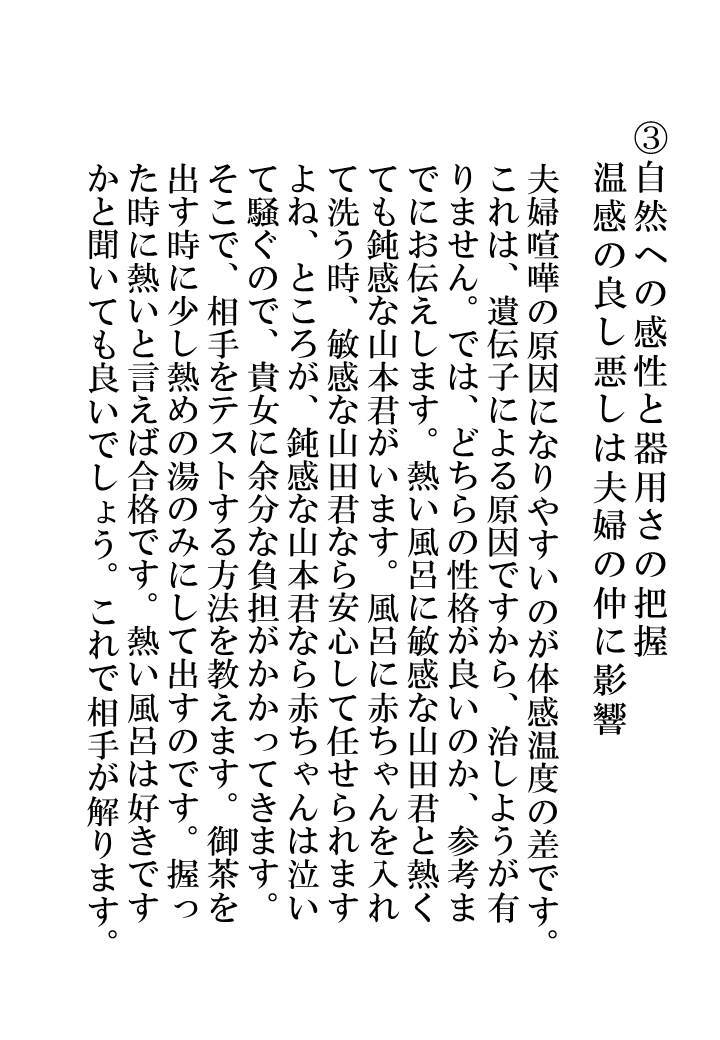 ③自然への感性と器用さの把握
温感の良し悪しは夫婦の仲に影響
夫婦喧嘩の原因になりやすいのが体感温度の差です。
これは、遺伝子による原因ですから、治しようが有
りません。では、どちらの性格が良いのか、参考ま
でにお伝えします。熱い風呂に敏感な山田君と熱く
ても鈍感な山本君がいます。風呂に赤ちゃんを入れ
て洗う時、敏感な山田君なら安心して任せられます
よね、ところが、鈍感な山本君なら赤ちゃんは泣い
て騒ぐので、貴女に余分な負担がかかってきます。
そこで、相手をテストする方法を教えます。御茶を
出す時に少し熱めの湯のみにして出すのです。握っ
た時に熱いと言えば合格です。熱い風呂は好きです
かと聞いても良いでしょう。これで相手が解ります。